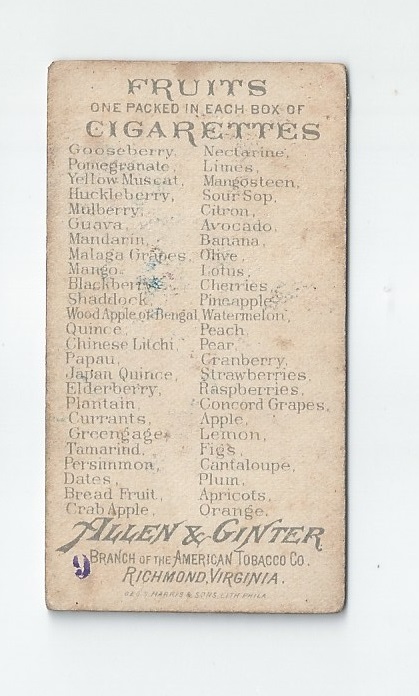 FRUITS
ONE PACKED IN EACH BOX OF
CIGARETTES
Gooseberry,
Pomegranate,
Yellow Muscat,
Huckleberry,
Mulberry,
Guava,
Mandarin,
Malaga Grapes,
Mango,
Blackberries,
Shaddock,
Wood Apple of Bengal,
Quince,
Chinese Litchi,
Papau,
Japan Quince,
Elderberry,
Plantain,
Currants,
Greengage,
Tamarind,
Persimmon,
Dates,
Bread Fruit,
Crab Apple,
Nectarine,
Limes,
Mangosteen,
Sour Sop,
Citron,
Avocado,
Banana,
Olive,
Lotus,
Cherries,
Pineapple,
Watermelon,
Peach,
Pear,
Cranberry,
Strawberries,
Raspberries,
Concord Grapes,
Apple,
Lemon,
Figs,
Cantaloupe,
Plum,
Apricots,
Orange.
ALLEN & GINTER
BRANCH OF THE AMERICAN TOBACCO CO.
9
RICHMOND, VIRGINIA.
HARRIS & SONS, LITH. PHILA.